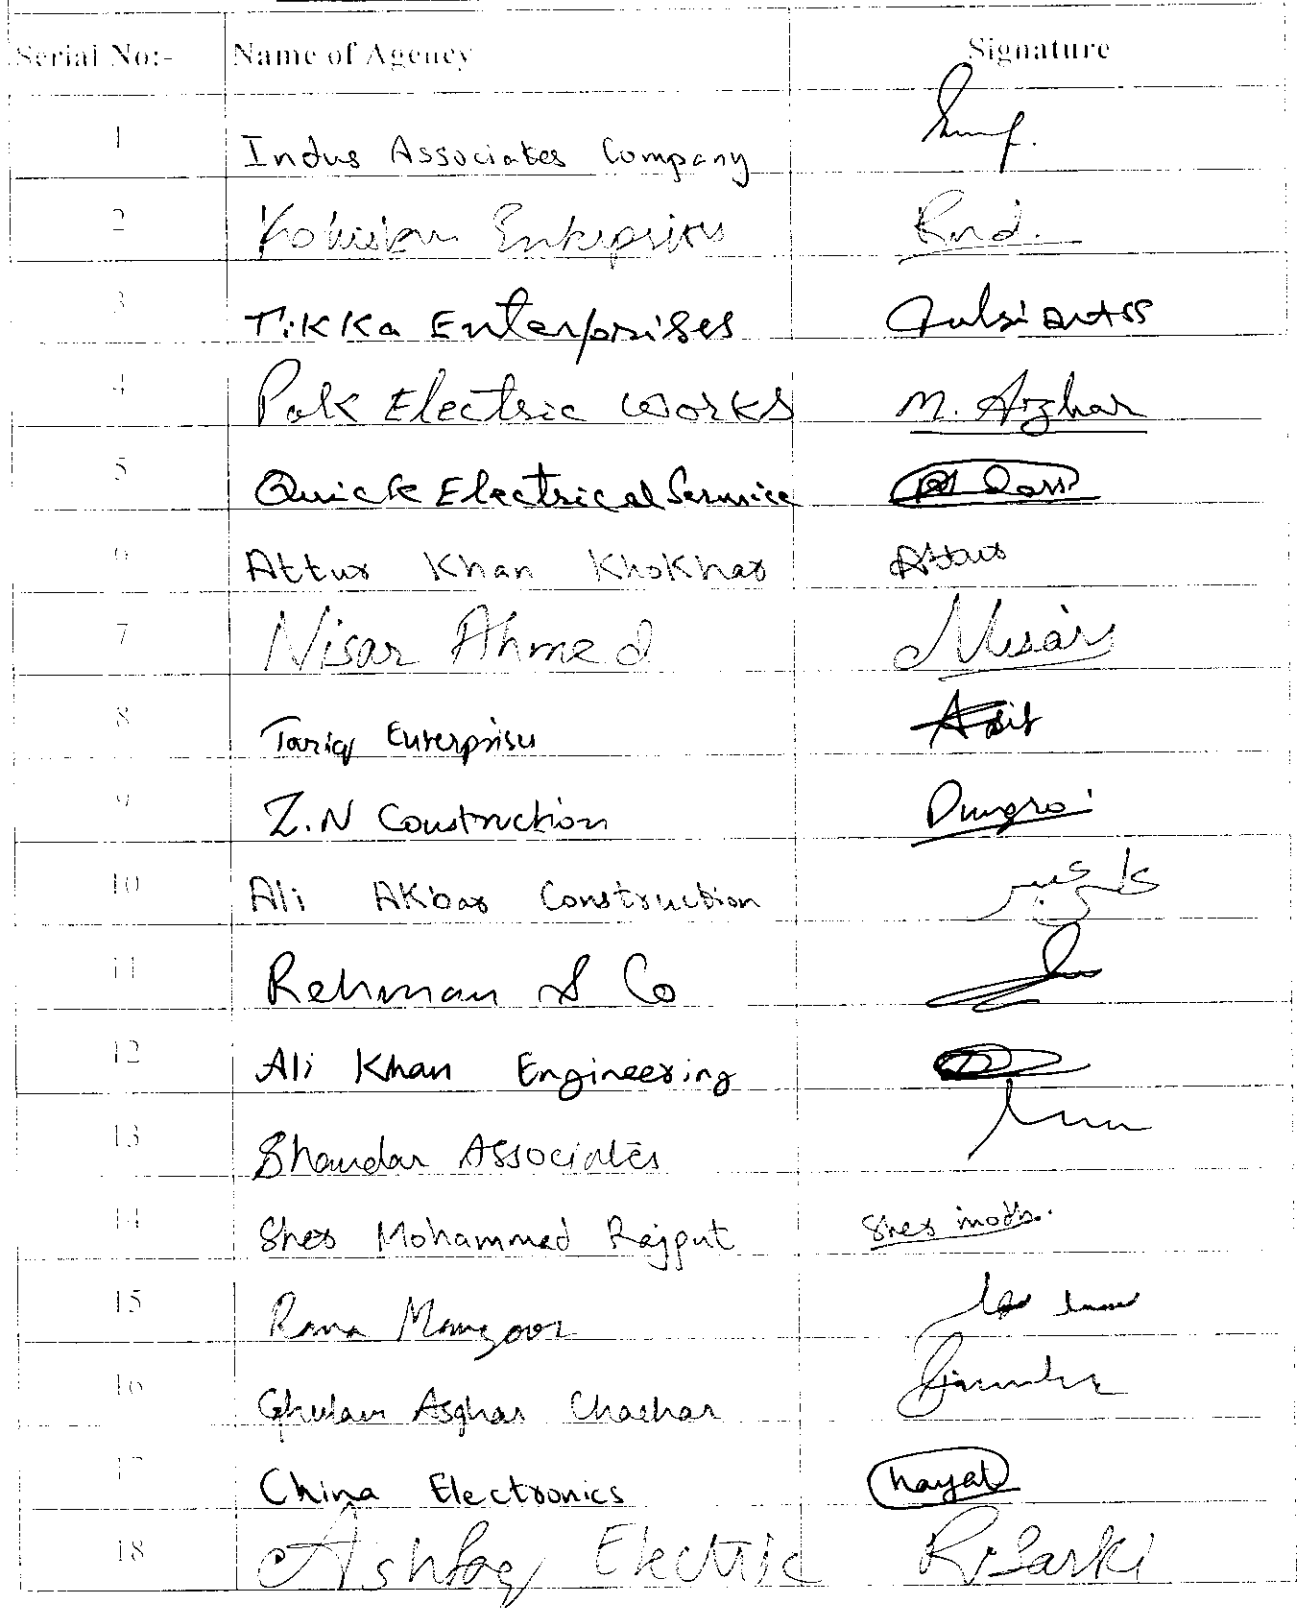 Serial No:- Name of Agency Signature
1 Indus Associates Company
2 Kohistan Enterprises
3 Tikka Enterprises
4 Pak Electric works M. Azhar
5 Quick Electrical Service
6 Attur Khan Khokhar Attur
7 Nisar Ahmed Nisar
8 Tariq Enterprises Asif
9 Z.N Construction
10 Ali Akbar Construction
11 Rehman & Co
12 Ali Khan Engineering
13 Bhandar Associates
14 Sher Mohammed Rajput Sher mohd.
15 Rana Manzoor
16 Ghulam Asghar Chachar
17 China Electronics hayat
18 Ashfaq Electric